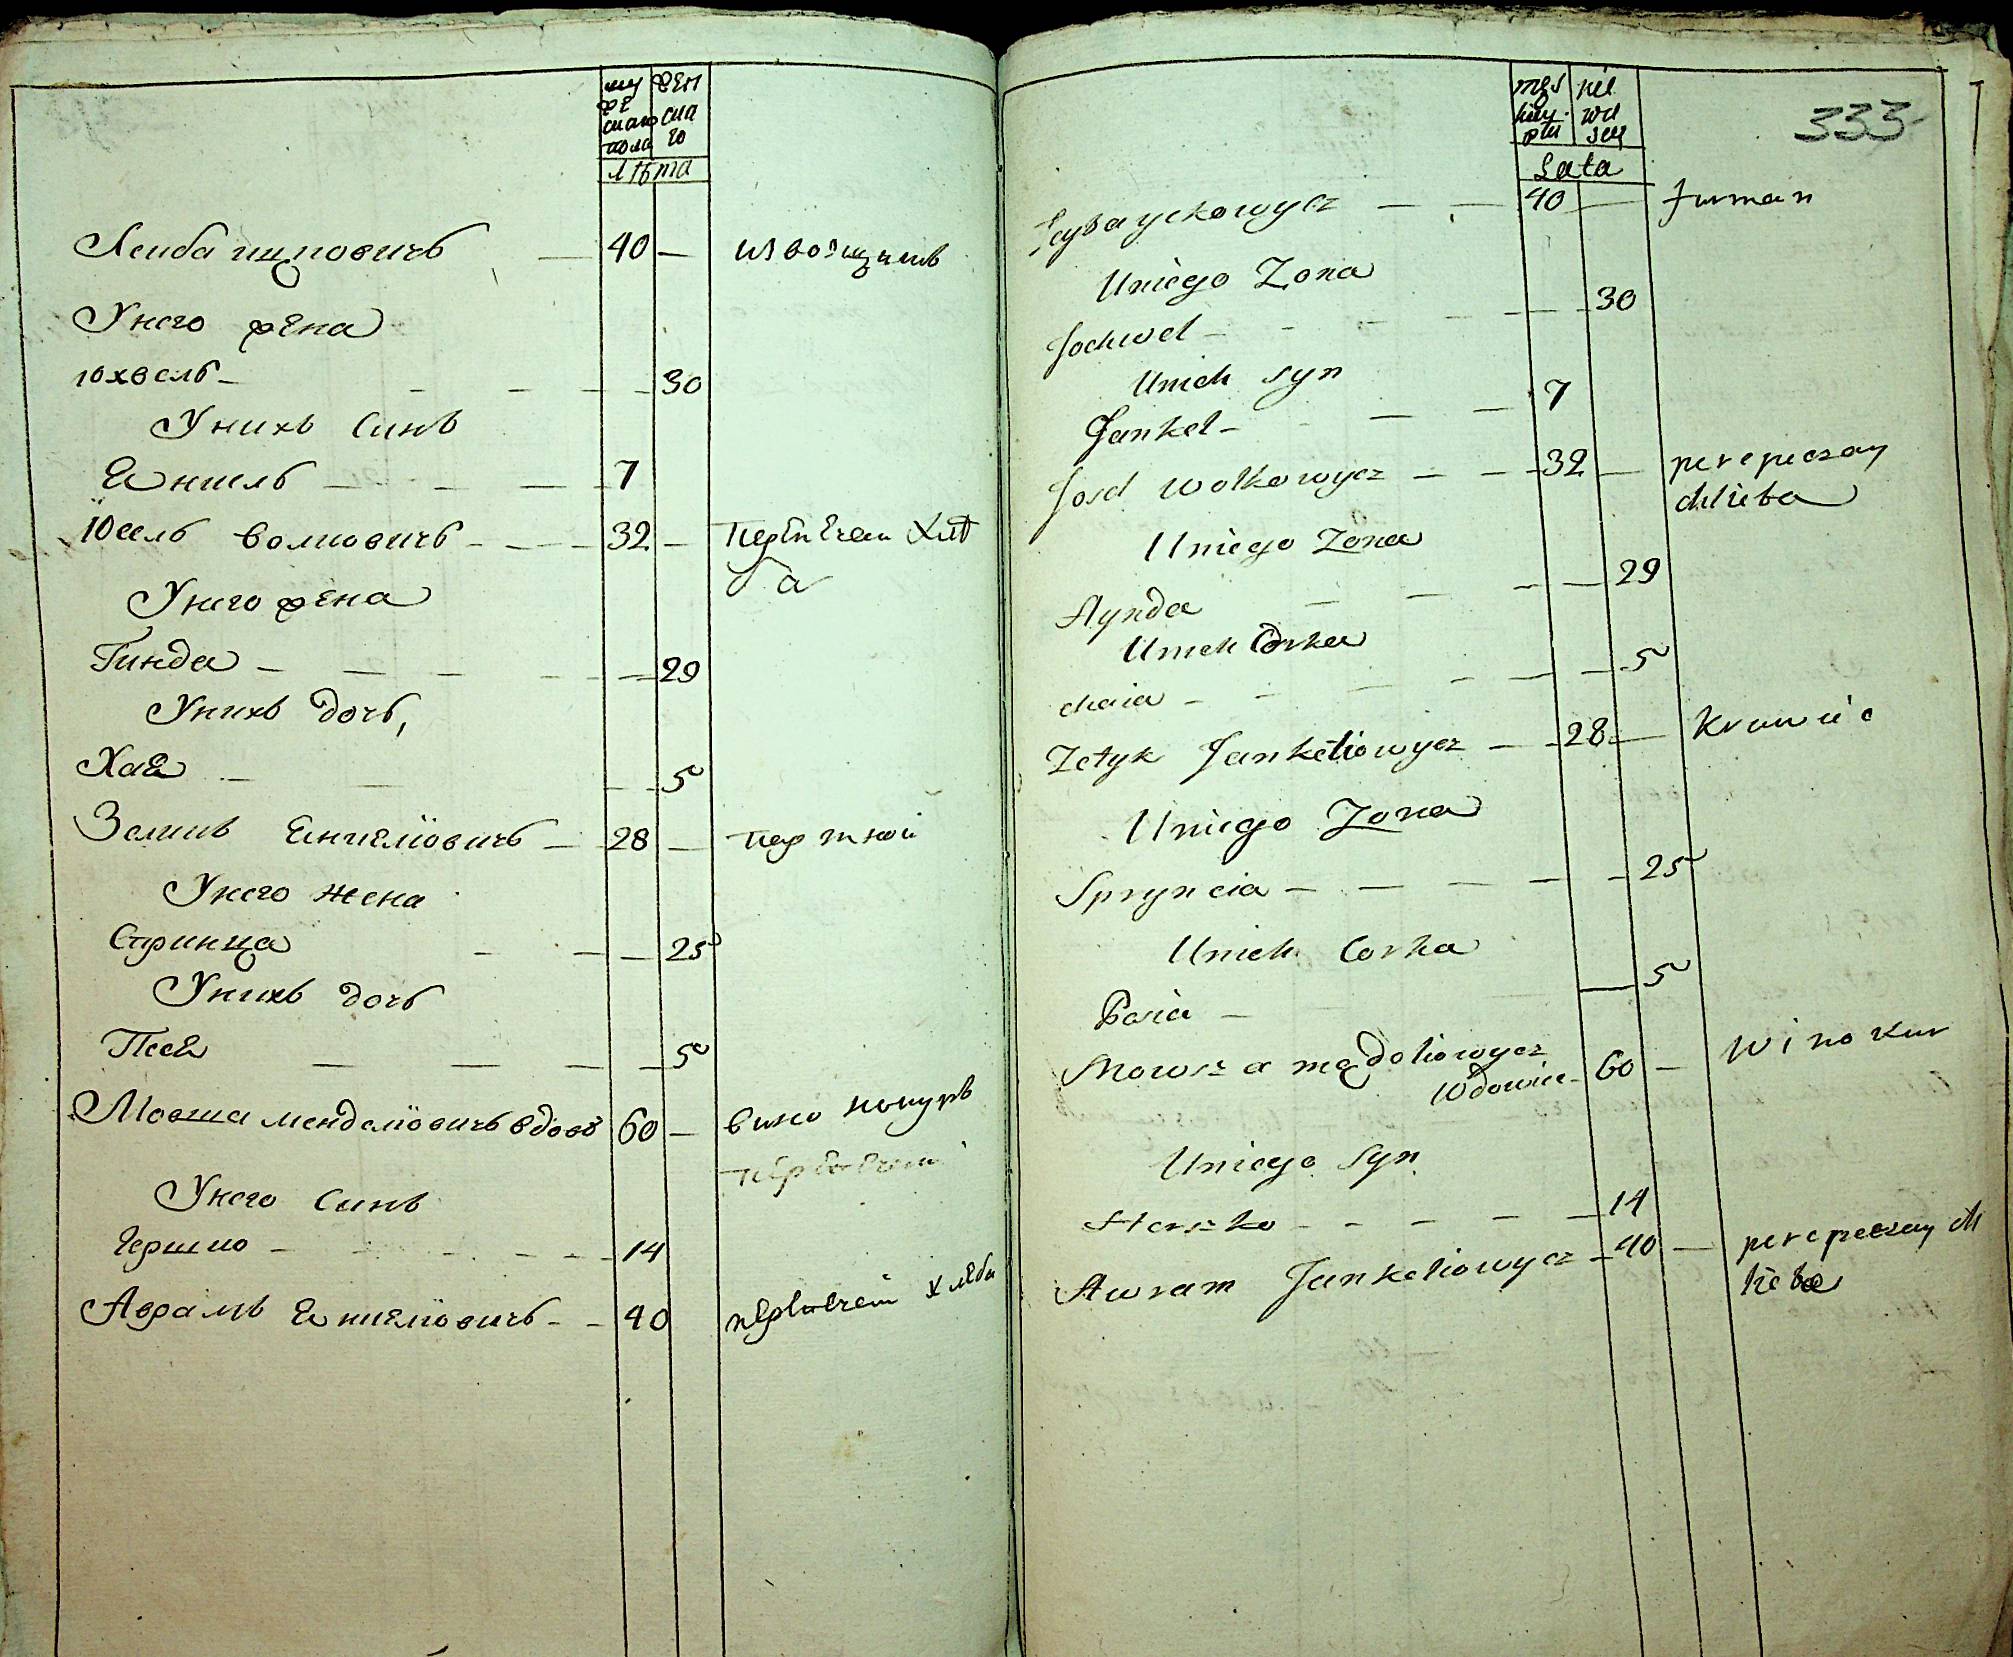 му женска
же го
ска
пола
лѣта
Лейба ицковичъ — 40 — извощикъ
Унего жена
юхвель — 30
Унихъ Синъ
Енкель — 7
Юсель волковичъ — 32 — Перепечаи Хлѣ
ба
Унего жена
Гинда — 29
Унихъ дочь,
Хае — 5
Зеликъ Енкелiовичъ — 28 — портной
Унего жена
Спринца — 25
Унихъ дочь
Песе — 5
Мовша менделiовичъ вдовъ 60 — вино кокуръ
Унего Синъ
Гершко — 14
Аврамъ Енкелiовичъ — 40 перепечаи хлеба
333
męs nie
kiey wie
płci sciey
Lata
40 — furman
Uniego Zona
Jochwel — 30
Unich syn
Jankel — 7
Josel wolkowycz — 32 — perepeczay
chlieba
Uniego Zona
Hynda — 29
Unich Corka
chaia — 5
Zelyk Jankeliowycz — 28 — Krawiec
Uniego Zona
Spryncia — 25
Unich Corka
Pesia — 5
Mowsza mędeliowycz
wdowiec — 60 — winokur
Uniego Syn
Herszko — 14
Awram Jankeliowycz — 40 — perepeczay ch
lieba